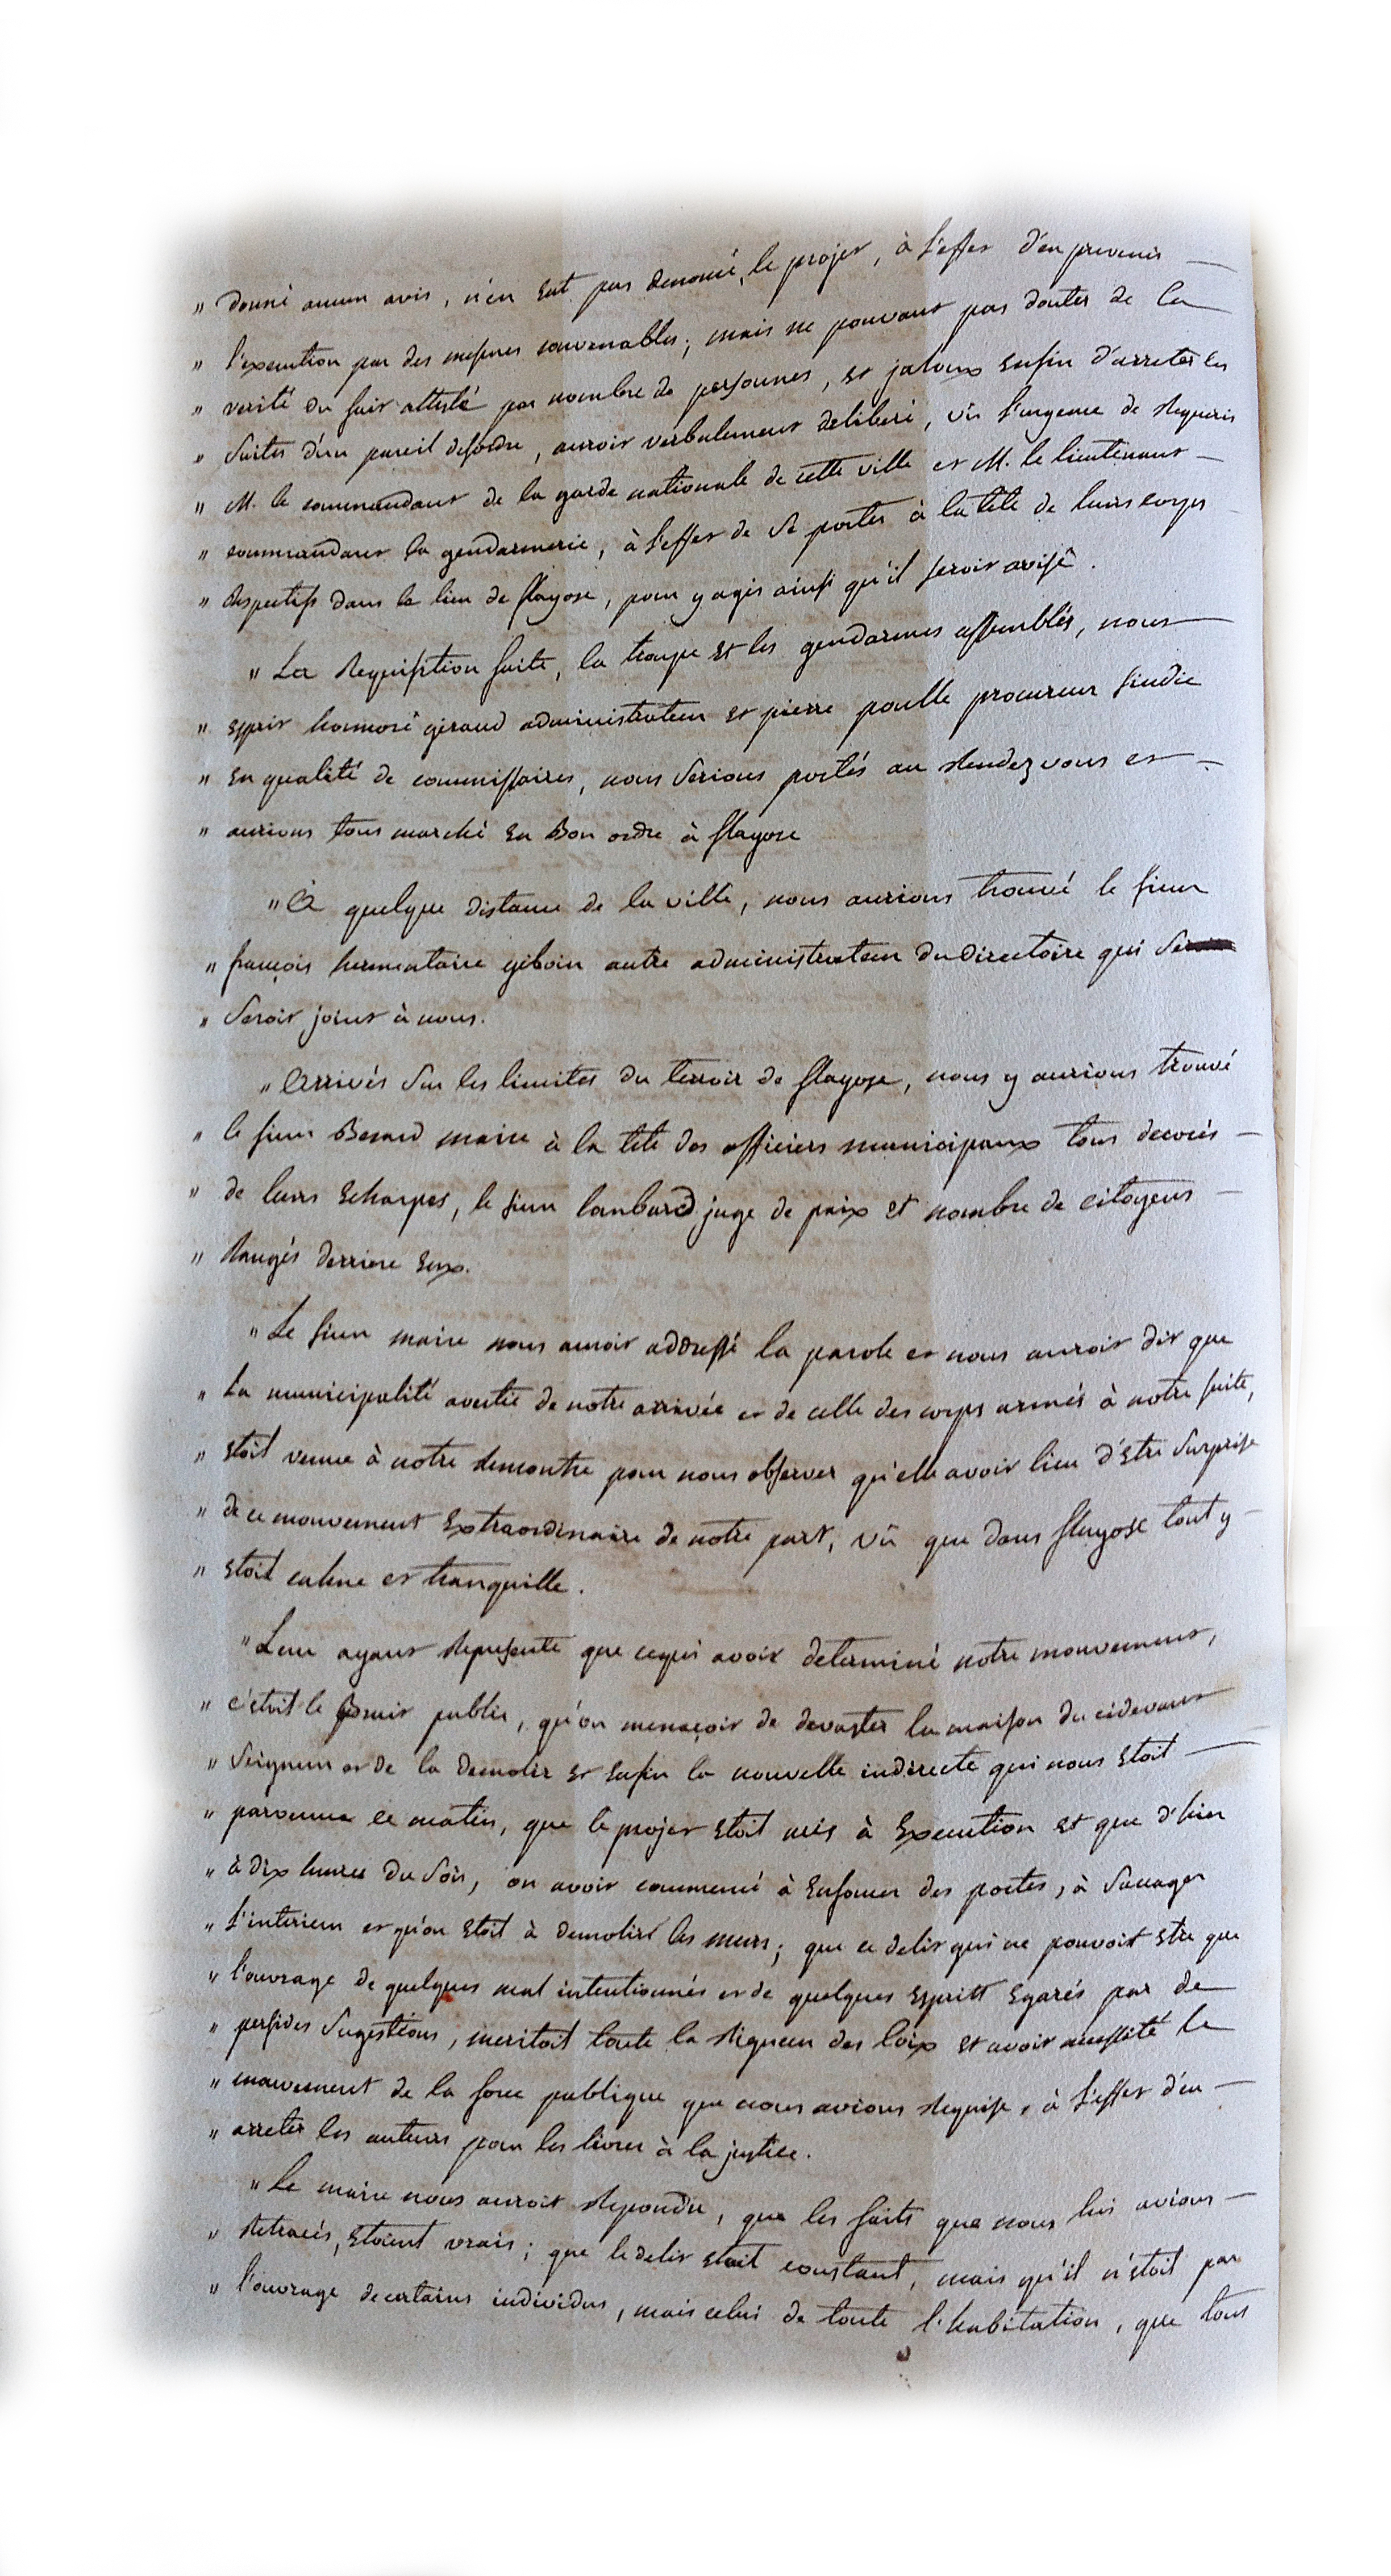 " donné aucun avis, n'en eut pas denoncé le projet, à l'effet d'en prevenir —
" l'execution par des mesures convenables; mais ne pouvant pas douter de la
" verité du fait attesté par nombre de personnes, et jaloux enfin d'arreter les
" suites d'un pareil desordre, auroit verbalement deliberé, vû l'urgence de requerir
" M. le commandant de la garde nationale de cette ville et M. le lieutenant —
" commandant la gendarmerie, à l'effet de se porter à la tête de leurs corps
" respectifs dans le lieu de flayosc, pour y agir ainsi qu'il seroit avisé.
" La requisition faite, la troupe et les gendarmes assemblés, nous —
" esprit honnoré giraud administrateur et pierre poulle procureur sindic
" en qualité de commissaires, nous serions portés au rendez vous et —
" aurions tous marché en bon ordre à flayosc
" à quelque distance de la ville, nous aurions trouvé le sieur
" françois hermentaire giboin autre administrateur du directoire qui
" seroit joint à nous.
" arrivés sur les limites du terroir de flayosc, nous y aurions trouvé
" le sieur Berard maire à la tete des officiers municipaux tous decorés —
" de leurs echarpes, le sieur lambard juge de paix et nombre de citoyens —
" rangés derriere eux.
" Le sieur maire nous auroit addressé la parole et nous auroit dit que
" la municipalité avertie de notre arrivée et de celle des corps armés à notre suite,
" etoit venue à notre rencontre pour nous observer qu'elle avoit lieu d'etre surprise
" de ce mouvement extraordinaire de notre part, vû que dans flayosc tout y —
" etoit calme et tranquille.
" Leur ayant representé que ce qui avoit determiné notre mouvement,
" c'etoit le bruit public, qu'on menaçoit de devaster la maison du cidevant —
" seigneur et de la demolir et enfin la nouvelle indirecte qui nous etoit —
" parvenue ce matin, que le projet etoit mis à execution et que d'hier
" à dix heures du soir, on avoit commencé à enfoncer des portes, à saccager
" l'interieur et qu'on etoit à demolir les murs; que ce delit qui ne pouvoit etre que
" l'ouvrage de quelques mal intentionnés et de quelques esprits egarés par de
" perfides sugestions, meritoit toute la rigueur des loix et avoit necessité le
" mouvement de la force publique que nous avions requise, à l'effet d'en —
" arreter les auteurs pour les livrer à la justice.
" Le maire nous auroit repondu, que les faits que nous lui avions —
" retracés, etoient vrais; que le delit etoit constant, mais qu'il n'etoit pas
" l'ouvrage de certains individus, mais celui de toute l'habitation, que tous